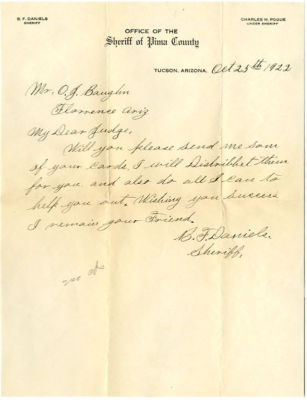 B. F. DANIELS
SHERIFF
CHARLES H. POGUE
UNDER SHERIFF
OFFICE OF THE
Sheriff of Pima County
TUCSON, ARIZONA, Oct 25th 1922
Mr. O. J. Baughn
Florence Ariz
My Dear Judge,
Will you please send me som
of your Cards, I will Distribbet them
for you and also do all I can to
help you out. Wishing you Success
I remain your Friend.
B. F. Daniels.
Sheriff,